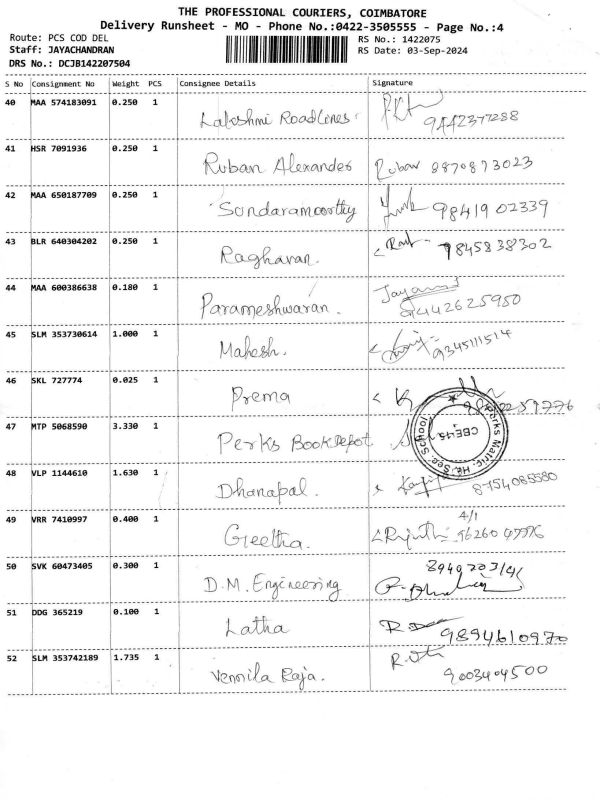 THE PROFESSIONAL COURIERS, COIMBATORE
Delivery Runsheet - MO - Phone No.:0422-3505555 - Page No.:4
Route: PCS COD DEL RS No.: 1422075
Staff: JAYACHANDRAN RS Date: 03-Sep-2024
DRS No.: DCJB142207504
S No Consignment No Weight PCS Consignee Details Signature
40 MAA 574183091 0.250 1
Lakshmi Roadlines 9442377288
41 HSR 7091936 0.250 1
Ruban Alexander Ruban 8870873023
42 MAA 650187709 0.250 1
Sundaramoorthy 9841902339
43 BLR 640304202 0.250 1
Raghavan. 9845838302
44 MAA 600386638 0.180 1
Parameshwaran. 9442625950
45 SLM 353730614 1.000 1
Mahesh. 9345111514
46 SKL 727774 0.025 1
Prema
47 MTP 5068590 3.330 1
Perks Book Depot Perks Matric. Hr. Sec. School. CBE-15.
48 VLP 1144610 1.630 1
Dhanapal. 8754085580
49 VRR 7410997 0.400 1
4/1
Geetha.
50 SVK 60473405 0.300 1
D.M. Engineering
51 DDG 365219 0.100 1
Latha 9894610970
52 SLM 353742189 1.735 1
Vennila Raja. 9003404500